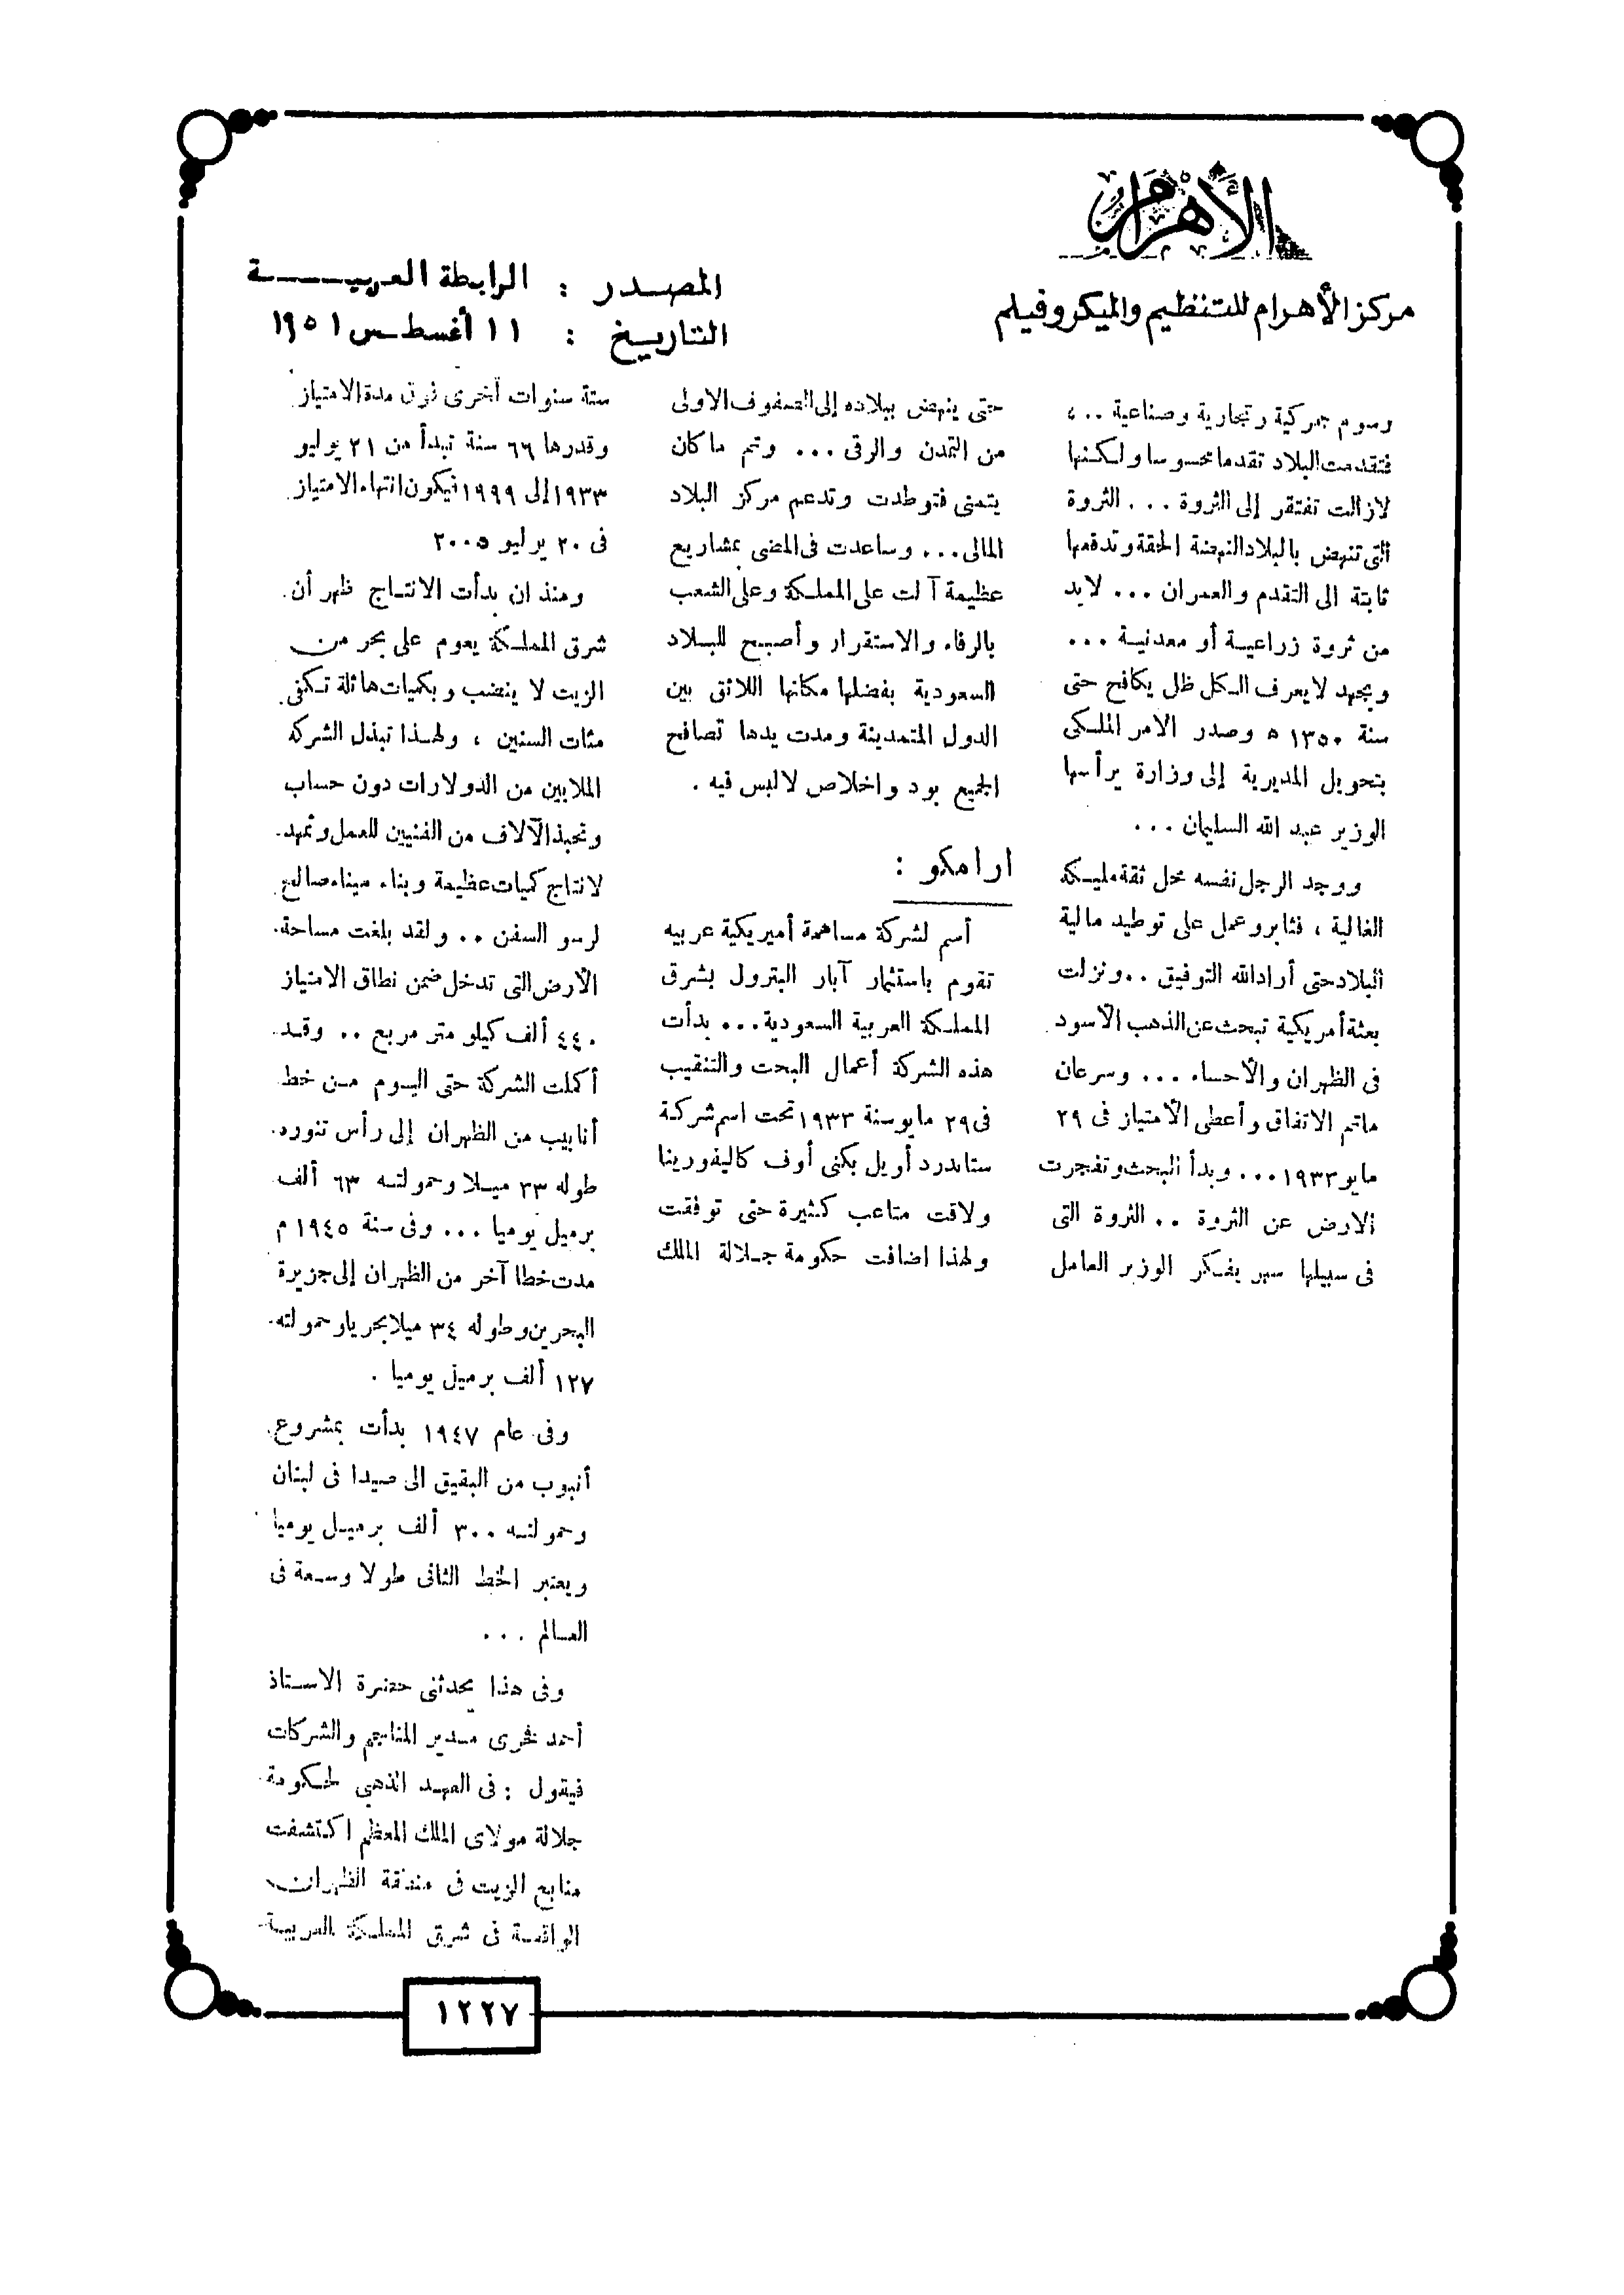 الأهرام
مركز الأهرام للتنظيم والميكروفيلم
المصدر : الرابطة العربية
التاريخ : ١١ أغسطس ١٩٥١
وسوم جمركية وتجارية وصناعية . . ،
فتقدمت البلاد تقدما محسوسا ولكنها
لازالت تفتقر إلى الثروة . . . الثروة
التى تنهض بالبلاد النهضة الحقة وتدفعها
ثابتة الى التقدم والعمران . . . لابد
من ثروة زراعية أو معدنية . . .
وبجهد لا يعرف الكل ظل يكافح حتى
سنة ١٣٥٠ ه وصدر الامر الملكى
بتحويل المديرية إلى وزارة يرأسها
الوزير عبد الله السليمان . . .
ووجد الرجل نفسه محل ثقة مليكه
الغالية ، فثابر وعمل على توطيد مالية
البلاد حتى أراد الله التوفيق . . ونزلت
بعثة أمريكية تبحث عن الذهب الأسود
فى الظهران والأحساء . . . وسرعان
ماتم الاتفاق وأعطى الأمتياز فى ٢٩
مايو ١٩٣٣ . . . وبدأ البحث وتفجرت
الارض عن الثروة . . الثروة التى
فى سبيلها سهر يفكر الوزير العامل
حتى ينهض ببلاده إلى الصفوف الاولى
من التمدن والرقى . . . وتم ما كان
يتمنى فتوطدت وتدعم مركز البلاد
المالى . . . وساعدت فى المضى بمشاريع
عظيمة آلت على المملكة وعلى الشعب
بالرفاء والاستقرار وأصبح للبلاد
السعودية بفضلها مكانها اللائق بين
الدول المتمدينة ومدت يدها تصافح
الجميع بود واخلاص لا لبس فيه .
ارامكو :
أسم لشركة مساهمة أميريكية عربيه
تقوم باستثمار آبار البترول بشرق
المملكة العربية السعودية . . . بدأت
هذه الشركة أعمال البحث والتنقيب
فى ٢٩ مايو سنة ١٩٣٣ تحت اسم شركة
ستاندرد أويل بكنى أوف كاليفورينا
ولاقت متاعب كثيرة حتى توفقت
ولهذا اضافت حكومة جلالة الملك
ستة سنوات أخرى فوق مدة الامتياز
وقدرها ٦٦ سنة تبدأ من ٢١ يوليو
١٩٣٣ إلى ١٩٩٩ فيكون انتهاء الامتياز
فى ٢٠ يوليو ٢٠٠٥
ومنذ ان بدأت الانتاج ظهر أن
شرق المملكة يعوم على بحر من
الزيت لا ينضب وبكميات هائلة تكفى
مئات السنين ، ولهذا تبذل الشركه
الملايين من الدولارات دون حساب
وتجند الآلاف من الفنيين للعمل وتمهد
لانتاج كميات عظيمة وبناء ميناء صالح
لرسو السفن . . ولقد بلغت مساحة
الأرض التى تدخل ضمن نطاق الامتياز
٤٤٠ ألف كيلو متر مربع . . وقد
أكملت الشركة حتى اليوم من خط
أنابيب من الظهران إلى رأس تنوره
طوله ٣٣ ميلا وحمولته ٦٣ ألف
برميل يوميا . . . وفى سنة ١٩٤٥ م
مدت خطا آخر من الظهران إلى جزيرة
البحرين وطوله ٣٤ ميلا بحريا وحمولته
١٢٧ ألف برميل يوميا .
وفى عام ١٩٤٧ بدأت بمشروع
أنبوب من البقيق الى صيدا فى لبنان
وحمولته ٣٠٠ ألف برميل يوميا
ويعتبر الخط الثانى طولا وسعة فى
العالم . . .
وفى هذا يحدثنى حضرة الاستاذ
أحمد فخرى مدير المناجم والشركات
فيقول : فى العهد الذهبى لحكومة
جلالة مولاى الملك المعظم اكتشفت
منابع الزيت فى منطقة الظهران
الواقعة فى شرق المملكة العربية
١٢٢٧